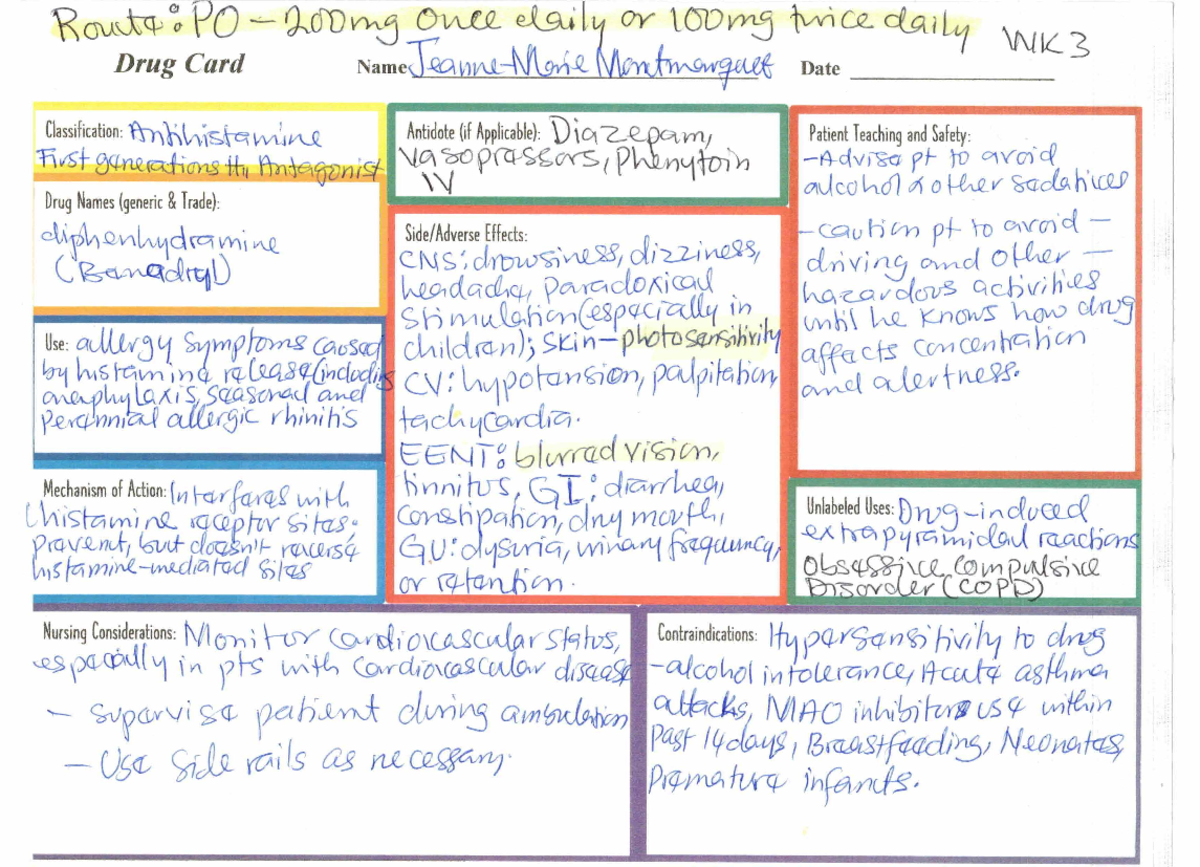 Route: PO - 200mg once daily or 100mg twice daily
WK3
Drug Card
Name Jeanne-Marie Montmarquet
Date
Classification: Antihistamine
First generations H1 Antagonist
Drug Names (generic & Trade):
diphenhydramine
(Benadryl)
Use: allergy symptoms caused
by histamine release (including
anaphylaxis, seasonal and
perennial allergic rhinitis
Mechanism of Action: Interferes with
histamine receptor sites;
prevent, but doesn't reverse
histamine-mediated sites
Antidote (if Applicable): Diazepam,
Vasopressors, Phenytoin
IV
Side/Adverse Effects:
CNS: drowsiness, dizziness,
headache, paradoxical
stimulation (especially in
children); skin - photosensitivity
CV: hypotension, palpitation,
tachycardia.
EENT: blurred vision,
tinnitus, GI: diarrhea,
constipation, dry mouth,
GU: dysuria, urinary frequency,
or retention.
Patient Teaching and Safety:
- Advise pt to avoid
alcohol & other sedatives
- caution pt to avoid -
driving and other -
hazardous activities
until he knows how drug
affects concentration
and alertness.
Unlabeled Uses: Drug-induced
extrapyramidal reactions
Obsessive Compulsive
Disorder (COPD)
Nursing Considerations: Monitor cardiovascular status,
especially in pts with cardiovascular disease
- supervise patient during ambulation
- Use side rails as necessary.
Contraindications: Hypersensitivity to drug
- alcohol intolerance, Acute asthma
attacks, MAO inhibitors use within
past 14 days, Breastfeeding, Neonates,
Premature infants.